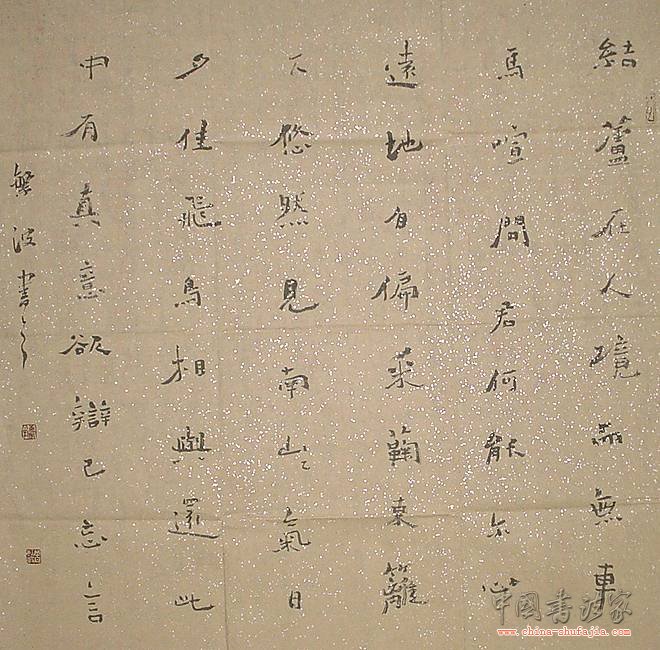 結廬在人境而無車
馬喧問君何能尔心
遠地自偏采菊東籬
下悠然見南山山氣日
夕佳飛鳥相與還此
中有真意欲辯已忘言
繁波书之
中国书法家
www.china-shufajia.com